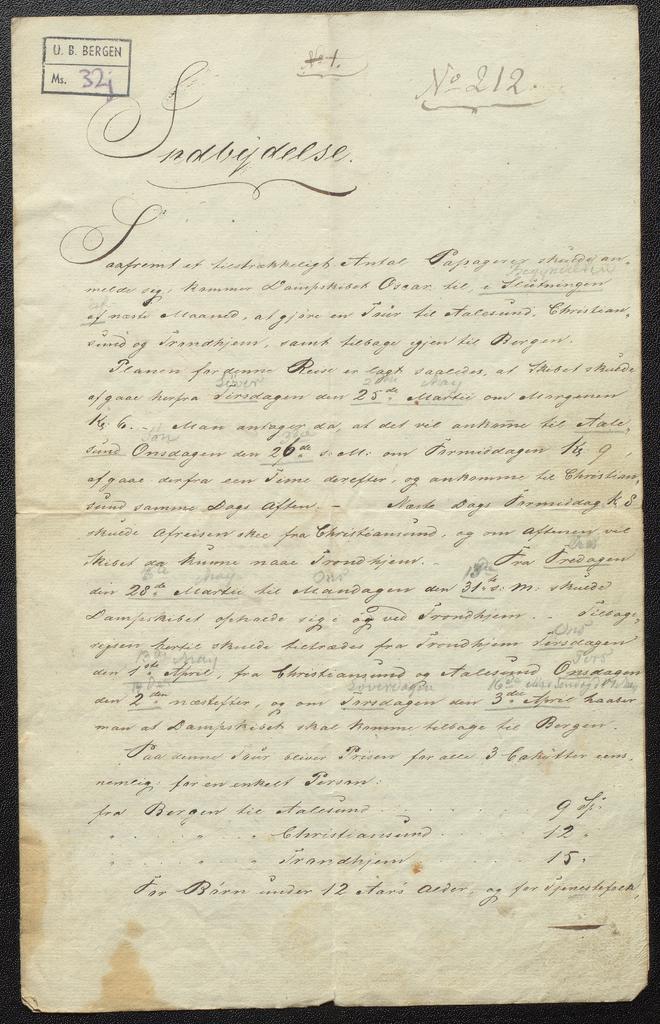 U. B. BERGEN
Ms. 32j
No 1.
No 212.
Indbydelse.
Saafremt et tilstrækkeligt Antal Passagerer skulde an-
Begyndelsen
melde sig, kommer Dampskibet Oscar til, i Slutningen
af næste Maaned, at gjøre en Tour til Aalesund, Christian-
sund og Trondhjem, samt tilbage igjen til Bergen.
Planen for denne Reise er lagt saaledes, at Skibet skulde
Løver May
afgaae herfra Tirsdagen den 25de Martii om Morgenen
Kl. 6. - Man antager da, at det vil ankomme til Aale-
Søn
sund Onsdagen den 26de s: M: om Formiddagen Kl. 9
afgaae derfra een Time derefter, og ankomme til Christian-
sund samme Dags Aften. - Næste Dags Formiddag k 8
skulde Afreisen skee fra Christiansund, og om Aftenen vil
Skibet da kunne naae Trondhjem. - Fra Fredagen
May Ons 13de
den 28de Martii til Mandagen den 31te s: M: skulde
Dampskibet opholde sig i og ved Trondhjem. - Tilbage-
Ons
rejsen hertil skulde tiltrædes fra Trondhjem Tirsdagen
May Tors
den 1ste April, fra Christiansund og Aalesund Onsdagen
Løverdagen 16de
den 2den næstefter, og om Torsdagen den 3die April haaber
man at Dampskibet skal komme tilbage til Bergen.
Paa denne Tour bliver Prisen for alle 3 Cahytter eens
nemlig: for en enkelt Person:
fra Bergen til Aalesund . . . . 9 Sp:
" " " Christiansund . . . 12 "
" " " Trondhjem . . . . 15 "
For Børn under 12 Aars Alder, og for Tjenestefolk,